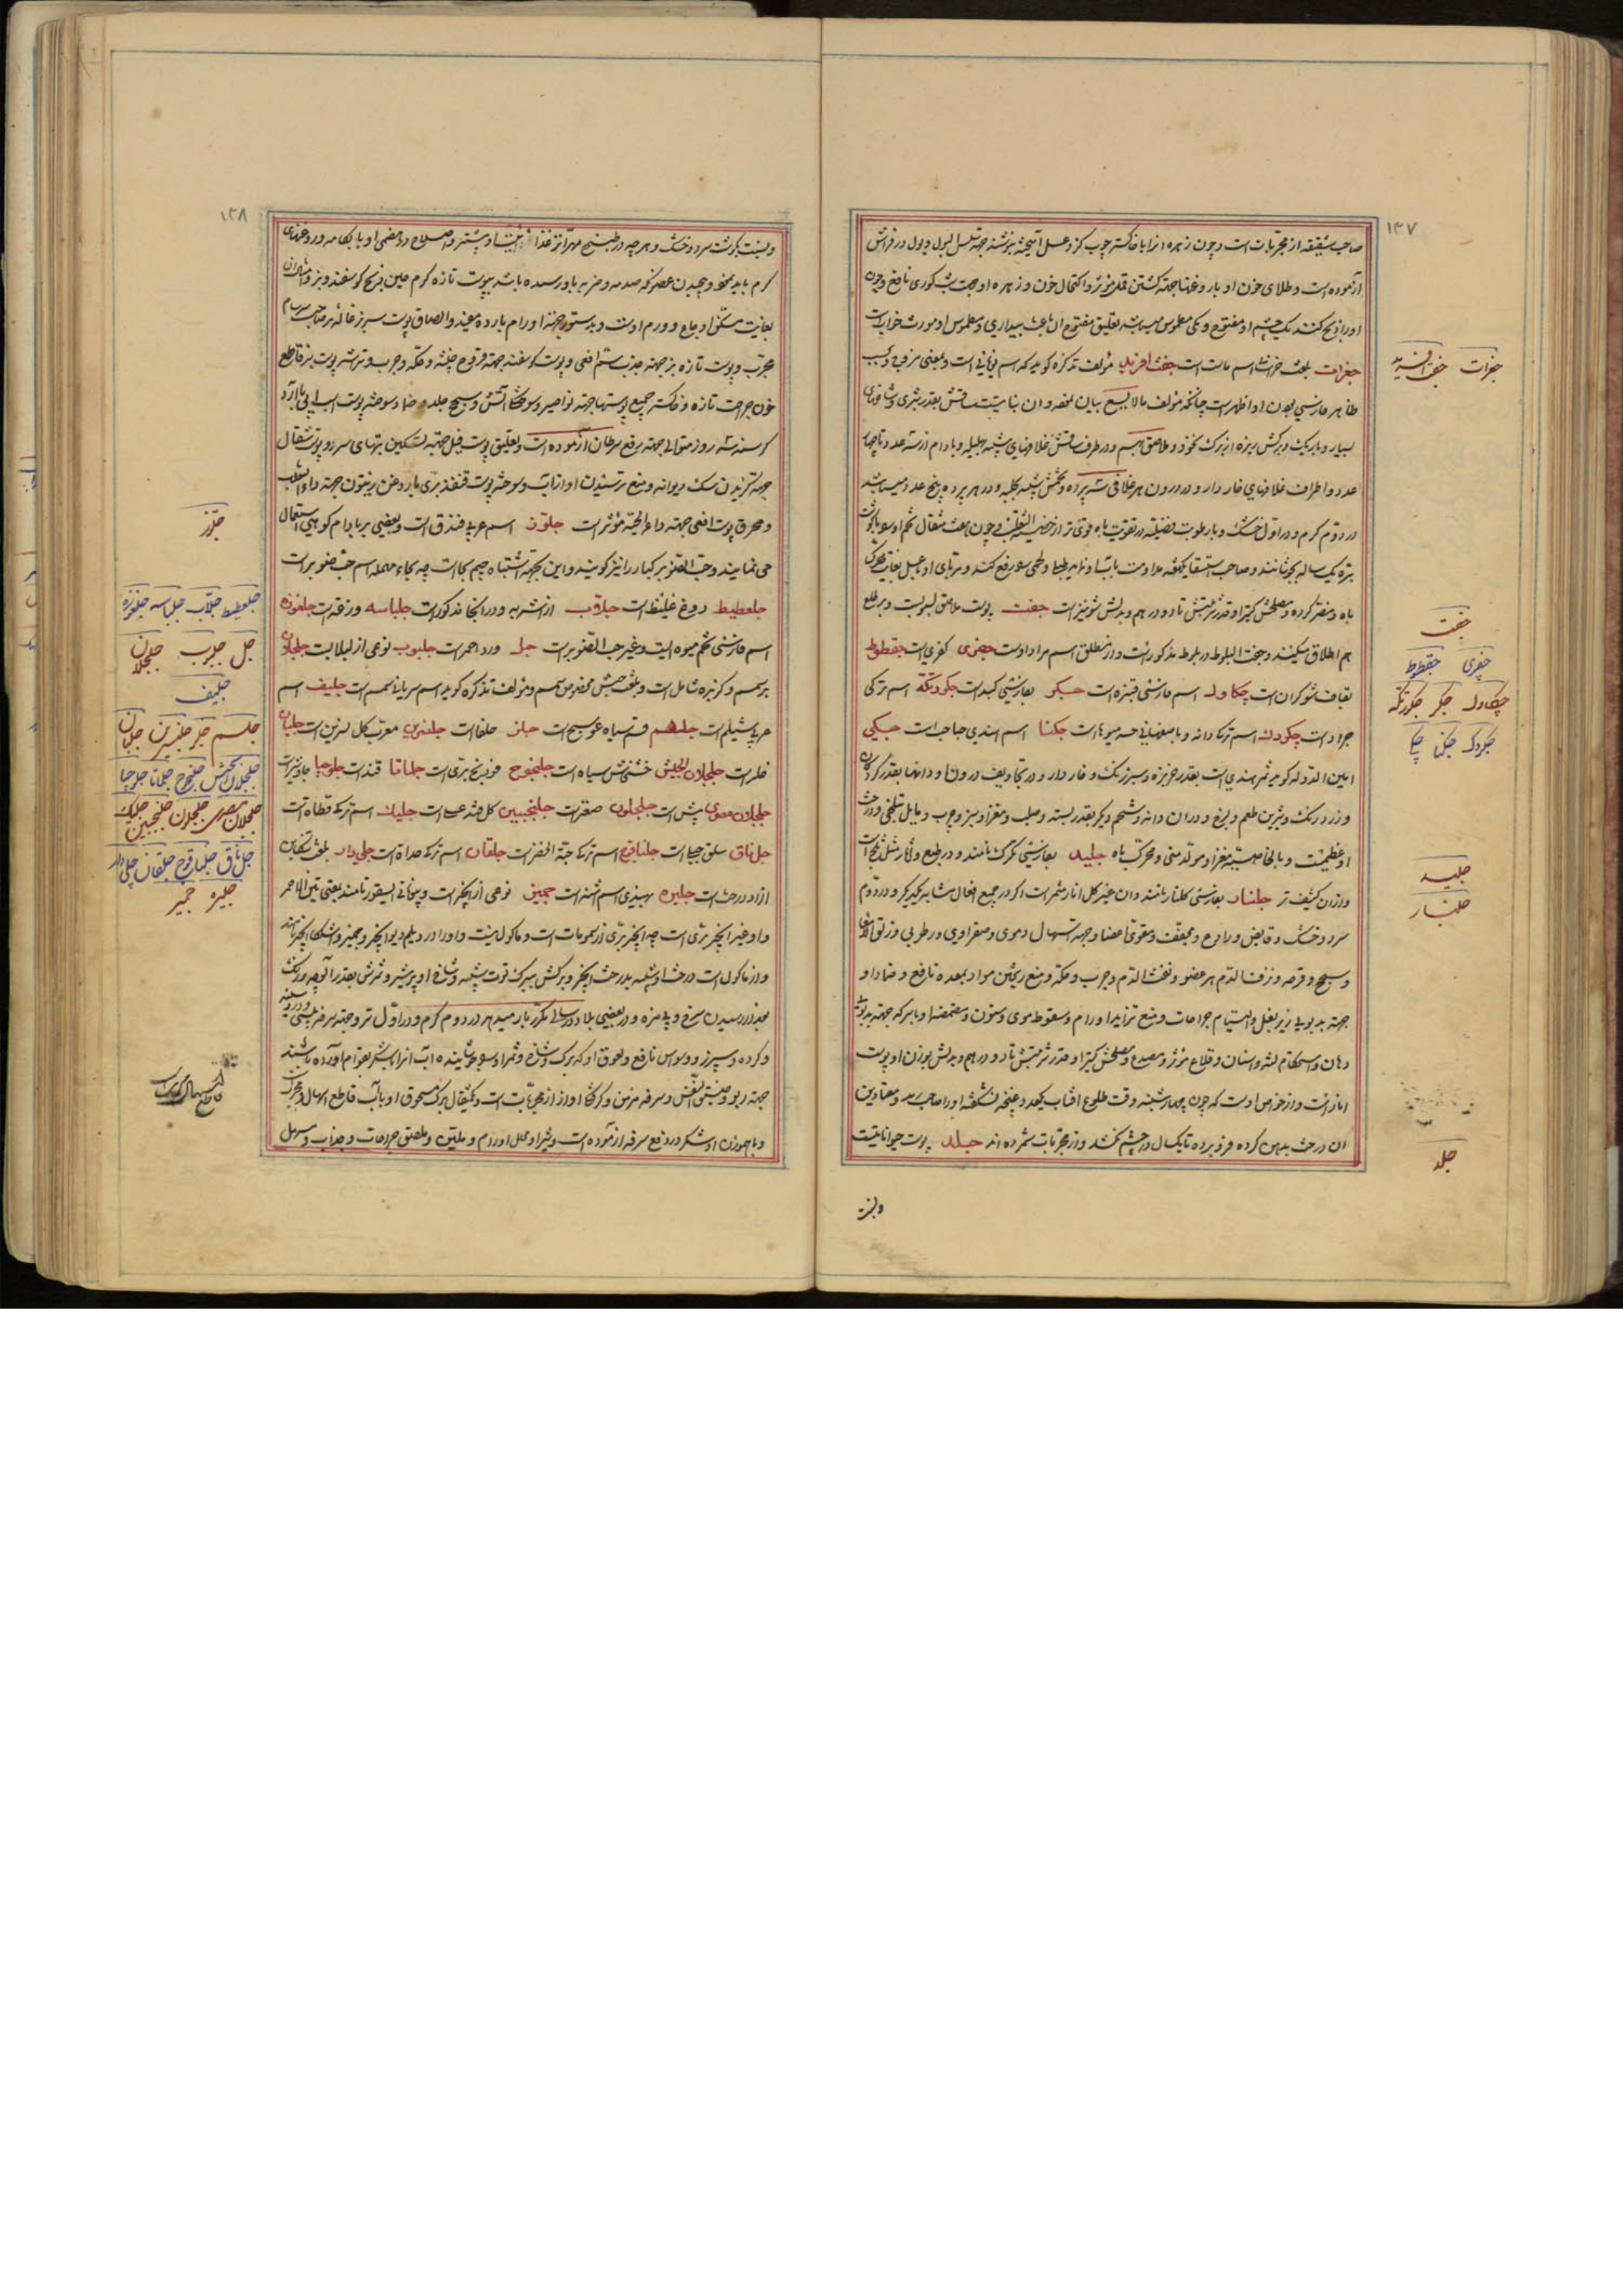 ۱۳۷
صاحب شقیقه از مجربات است و چون زهره او را با خاکستر چوب کز و عسل آمیخته بنوشند جهة سلس البول و بول در فراش
آزموده است و طلای خون او بار و غنها جهته کشتن قمل مؤثر و اکتحال خون و زهره او جهت شب کوری نافع و چون
او را ذبح کنند یک چشم او مفتوح و یکی مطموس میباشد تعلیق مفتوح ان باعث بیداری و مطموس او مورث خوابست
جغرات بلغت اسم ماست است جفت افرید مؤلف تذکره گوید که اسم یونانی است و بمعنی مزوج و
ظاهر فارسی بودن او اظهر است چنانکه مؤلف مالایسع بیان نموده و ان نباتیست ساقش بقدر شبری و شاخهای
بسیار و باریک و برکش ریزه از برک نخود و ملاصق بهم و در طرف ساقش غلافهای شبیه بهلیله و بادام از سه عدد تا چهار
عدد و اطراف غلافهای خاردار و در درون هر غلافی سه پرده و تخمش شبیه بحلبه و در هر پرده پنج عدد میباشد
در دوم گرم و در اول خشک و بارطوبت فضلیه در تقویت باه قوی تر از خصیة الثعلب و چون هفت مثقال تخم او سه با گوشت
بره یک ساله بجوشانند و صاحب استسقا یکهفته مداومت باب او نماید طبلی و لحمی را رفع کند و مربای او با عسل بغایت محرک
باه و مضر گرده و مصلحش کتیرا و قدر شربتش تا دو درهم و بدلش شونیز است جفت پوست ملاصق بلوطست و بر طلع
هم اطلاق میکنند و جفت البلوط در بلوط مذکور است و از مطلق اسم مراد اوست جفری کفری است جفطوط
بقاف شوکران است چکاوک اسم فارسی قنبره است جگر بفارسی کبد است جکرتکه اسم ترکی
جراد است چکردک اسم ترکی دانه و میوهاست جکنا اسم هندی حباحب است جبکی
امین الدوله گوید ثمر هندی است بقدر خربزه و سبز رنک و خاردار و در تجاویف درون او دانها بقدر گردکان
و زرد رنک و شیرین طعم و لزج و در ان دانه و شحم دیگر بقدر پسته و صلب و مغز او سبز و چرب و مایل بتلخی و درخت
او عظیمست و بالخاصیة مغز او مولد منی و محرک باه جلید بفارسی تکرک نامند و در طبع و آثار مثل ثلج است
و از ان کثیف تر جلنار بفارسی گلنار نامند و ان غیر گل انار مثمر است اگر در جمیع افعال مشابه یکدیگر و در دوم
سرد و خشک و قابض و رادع و مجفف و مقوی اعضا و جهته اسهال دموی و صفراوی و رطوبی و زلق الامعا
و سحج و قرحه و نزف الدم هر عضو و نفث الدم و جرب و حکه و منع ریختن مواد بمعده نافع و ضماد او
جهته بدبویی زیر بغل و التیام جراحات و منع تزاید اورام و سقوط موی و سنون و مضمضه او با سرکه جهته بدبویی
دهان و استحکام لثه و اسنان و قلاع مؤثر و مصدع و مصلحش کتیرا و قدر شربتش تا دو درهم و بدلش بوزن او پوست
انار است و از خواص اوست که چون چهارشنبه وقت طلوع افتاب یکعدد غنچه نشکفته او را صاحب رمد و معتادین
ان درخت بدهن کرده فرو برده تا یک سال درد چشم نکشد و از مجربات شمرده اند جلد پوست حیواناتست
جغرات جفت افرید
جفت
جفری جفطوط
چکاوک جکر جکرتکه
چکردک جکنا
جلید
جلنار
جلد
۱۳۸
و بنسبت بگوشت سرد و خشک و هر چه در طبخ مهرا تر غذائیت او بیشتر و اصلاح ردهضمی او بابکامه و روغنهای
گرم باید نمود و پیچیدن عضوی که صدمه و ضربه باو رسیده باشد بپوست تازه گرم حین ذبح گوسفند و بز
بغایت مسکن اوجاع و ورم اوست و بدستور جهته اورام بارده مفید و الصاق پوست سر بزغاله بر صاحب سرسام
مجرب و پوست تازه بز جهته جذب سم افعی و پوست گوسفند جهته قروح خبیثه و حکه و جرب و تراشه پوست بز قاطع
خون جراحت تازه و خاکستر جمیع پوستها جهته نواصیر و سوختگی آتش و سحج جلد و ضماد سوخته پوست
گرسنه سه روز متوالی جهته رفع سرطان آزموده است و تعلیق پوست فیل جهته تسکین تبهای سرد و
جهته گزیدن سک دیوانه و منع ترسیدن او از آب و سوخته پوست قنفذ بری با روغن زیتون جهته داء الثعلب
و محرق پوست افعی جهته داء الحیة مؤثر است جلوز اسم عربی فندق است و بعضی بر بادام کوهی استعمال
می نمایند و حب الصنوبر کبار را نیز گویند و این بجهته اشتباه جیم بحاست چه بحاء مهمله اسم حب صنوبر است
جلعطیط دوغ غلیظ است جلاب از اشربه و در انجا مذکور است جلباسه وزغه است جلغوزه
اسم فارسی تخم میوه ایست و غیر حب الصنوبر است جل ورد احمر است جلبوب نوعی از لبلاب است جلجلان
بر سمسم و کزبره شامل است و بلغت حبش مخصوص سمسم و مؤلف تذکره گوید اسم سریانی سمسم است جلیف اسم
عربی شیلم است جلهم قسم سیاه عوسج است جلز حلفا است جلنسرین معرب گل نسرین است جلبان
خلر است جلجلان الحبش خشخاش سیاه است جلنجوج فودنج بری است جلماثا قثد است جلوجیا جاوشیر است
جلجلان مصری بیش است جلجلون صعتر است جلنجبین گلقند عسلی است جلیک اسم ترکی قطاة است
جل ناق سلق جبلی است جلناقوج اسم ترکی حبة الخضر است جلقان اسم ترکی حداة است جلی دار بلغت تنکابن
ازاد درخت است جلیره بهندی اسم شهد است جمیز نوعی از انجیر است و بیونانی سیقور نامند یعنی تین الاحمر
و او غیر انجیر بری است چه انجیر بری از سمومات است و ماکول نیست و او را در دیلم دیو انجیر و جمیز و اشکال انجیر نامند
و از ماکول است درخت او شبیه بدرخت انجیر و برکش ببرک توت شبیه و شاخ او پرشیر و ثمرش بقدر آلوچه و رنک
بعد از رسیدن سرخ و بی مزه و در بعضی بلاد در سالی مکرر بار میدهد در دوم گرم و در اول تر و جهته سرفه بلغمی و درد سینه
و گرده و سپرز و وسواس نافع و لعوق او که برک و شاخ و ثمر او بجوشانیده اب انرا با شکر بقوام آورده باشند
جهته ربو و ضیق النفس و سرفه مزمن و گرفتگی آواز از مجربات است و یکمثقال برک مسحوق او باب قاطع اسهال و مجرب
و با هموزن او شکر در رفع سرفه آزموده است و شیر او محلل اورام و ملین و ملصق جراحات و جذاب و مسهل
جلوز
جلعطیط جلاب جلباسه جلغوزه
جل جلبوب جلجلان
جلیف
جلهم جلز جلنسرین جلبان
جلجلان الحبش جلنجوج جلماثا جلوجیا
جلجلان مصری جلجلون جلنجبین جلیک
جل ناق جلناقوج جلقان جلی دار
جلیره جمیز
قاطع اسهال